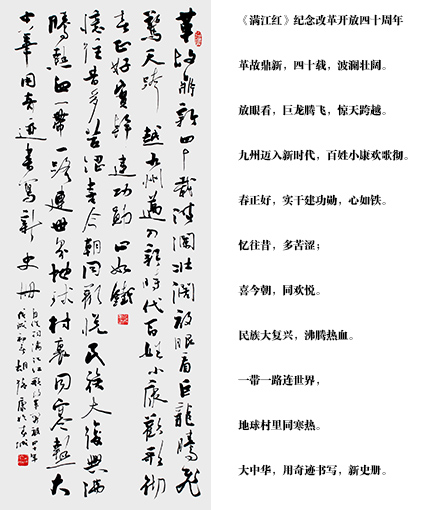 革故鼎新四十載波瀾壯闊放眼看巨龍騰飛
驚天跨越九州邁入新時代百姓小康歡歌徹
春正好實幹建功勛心如鐵
憶往昔多苦澀喜今朝同歡悅民族大復興沸
騰熱血一帶一路連世界地球村裏同寒熱大
中華用奇迹書寫新史冊
《满江红》纪念改革开放四十周年
革故鼎新，四十载，波澜壮阔。
放眼看，巨龙腾飞，惊天跨越。
九州迈入新时代，百姓小康欢歌彻。
春正好，实干建功勋，心如铁。
忆往昔，多苦涩；
喜今朝，同欢悦。
民族大复兴，沸腾热血。
一带一路连世界，
地球村里同寒热。
大中华，用奇迹书写，新史册。